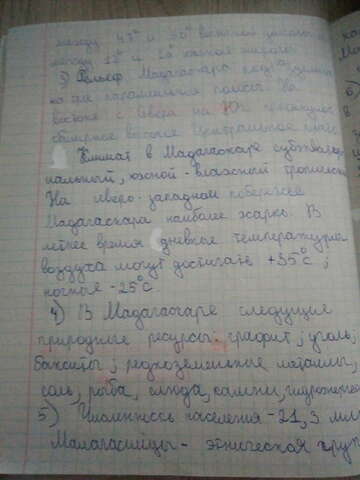 между 43° и 50° восточной долготы
между 12° и 26° южной широты
3) Рельеф Мадагаскара
на три параллельные полосы. На
востоке с севера на Юг
обширное высокое Центральное плато
Климат в Мадагаскаре субэква
нальный, южной - влажный тропичес
На северо-западном побережье
Мадагаскара наиболее жарко. В
летнее время дневные температуры
воздуха могут достигать +35°C;
ночные -25°C
4) В Мадагаскаре следущие
природные ресурсы: графит; уголь;
бокситы; редкоземельные металлы,
соль, рыба, слюда, камни, гидроэнерге
5) Численность населения -21,3 мил
Малагасийцы - этническая груп